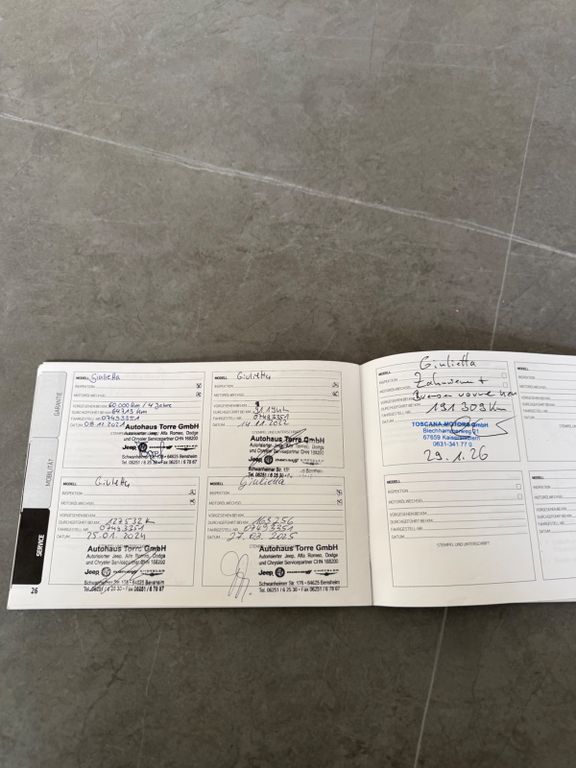 GARANTIE
MOBILITÄT
SERVICE
26
MODELL Giulietta
INSPEKTION
MOTORÖLWECHSEL
VORGESEHEN BEI KM 60 000 km / 4 Jahre
DURCHGEFÜHRT BEI KM 64713 km
FAHRGESTELL-NR. 07493351
DATUM 08.11.2021
Autohaus Torre GmbH
Autorisierter Jeep, Alfa Romeo, Dodge
und Chrysler Servicepartner CHN 168200
Jeep
Schwanheimer Str. 178 • 64625 Bensheim
Tel. 06251 / 6 25 30 • Fax 06251 / 6 78 67
MODELL Giulietta
INSPEKTION
MOTORÖLWECHSEL
VORGESEHEN BEI KM
DURCHGEFÜHRT BEI KM
FAHRGESTELL-NR. 07493351
DATUM 14.11.2022
STEMPEL UND UNTERSCHRIFT
Autohaus Torre GmbH
Autorisierter Jeep, Alfa Romeo, Dodge
und Chrysler Servicepartner CHN 168200
Jeep
Schwanheimer Str.
Tel. 06251 / 6 25 30 • Fax 06251 / 6 78 67
MODELL Giulietta
INSPEKTION
MOTORÖLWECHSEL
VORGESEHEN BEI KM
DURCHGEFÜHRT BEI KM 127532 km
FAHRGESTELL-NR. 07493351
DATUM 25.01.2024
Autohaus Torre GmbH
Autorisierter Jeep, Alfa Romeo, Dodge
und Chrysler Servicepartner CHN 168200
Jeep
Schwanheimer Str. 178 • 64625 Bensheim
Tel. 06251 / 6 25 30 • Fax 06251 / 6 78 67
MODELL Giulietta
INSPEKTION
MOTORÖLWECHSEL
VORGESEHEN BEI KM
DURCHGEFÜHRT BEI KM 163256
FAHRGESTELL-NR. 07493351
DATUM 27.03.2025
Autohaus Torre GmbH
Autorisierter Jeep, Alfa Romeo, Dodge
und Chrysler Servicepartner CHN 168200
Jeep
Schwanheimer Str. 178 • 64625 Bensheim
Tel. 06251 / 6 25 30 • Fax 06251 / 6 78 67
MODELL Giulietta
Zahnriemen +
Bremsen vorne
191 309 km
TOSCANA MOTORS GmbH
Blechhammerweg 21
67659 Kaiserslautern
0631-341 77 0
29.1.26
MODELL
INSPEKTION
MOTORÖLWECHSEL
VORGESEHEN BEI KM
DURCHGEFÜHRT BEI KM
FAHRGESTELL-NR.
DATUM
STEMPEL UND UNTERSCHRIFT